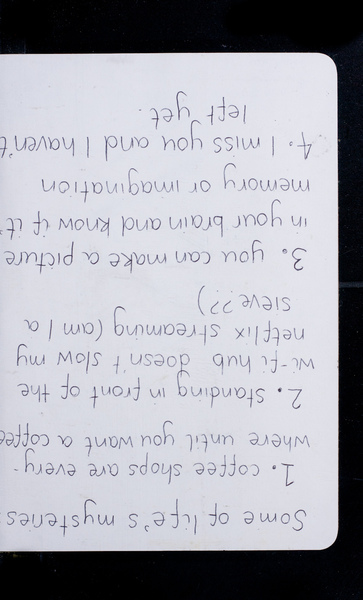 Some of life's mysteries
1. coffee shops are every-
where until you want a coffee
2. standing in front of the
wi-fi hub doesn't slow my
netflix streaming (am I a
sieve??)
3. you can make a picture
in your brain and know if it's
memory or imagination
4. I miss you and I haven't
left yet.